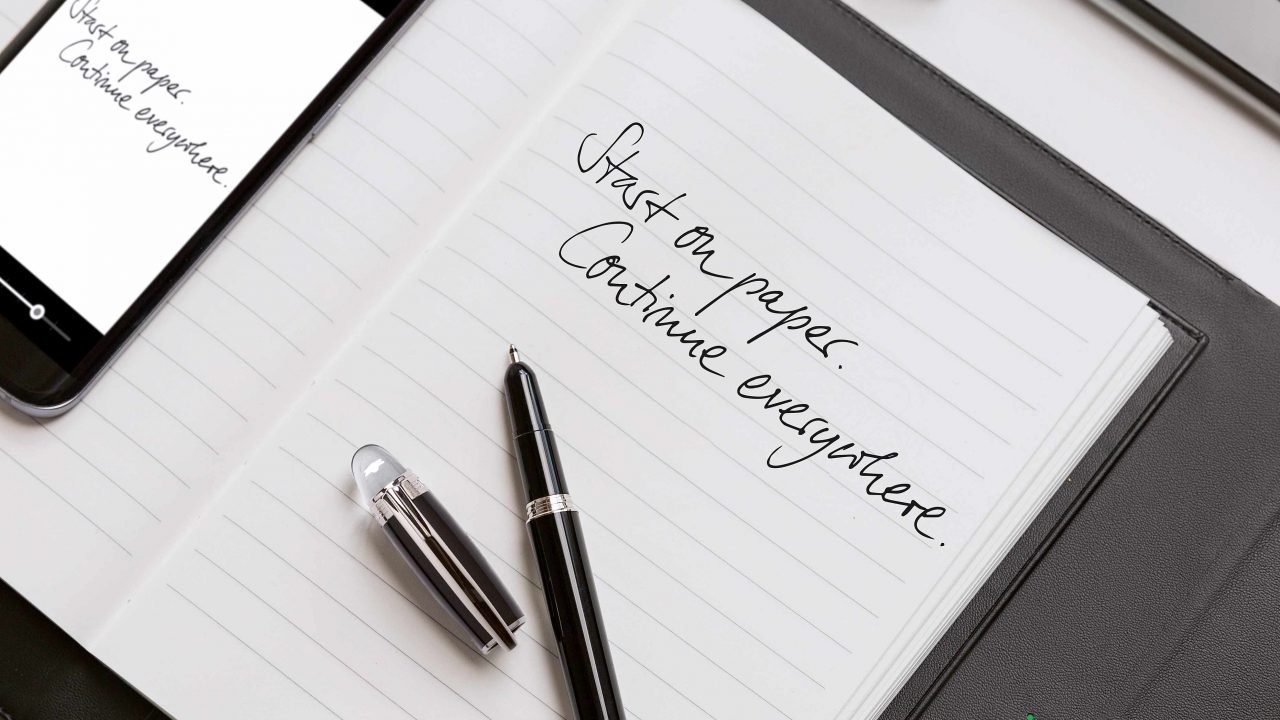 Start on paper.
Continue everywhere.
Start on paper.
Continue everywhere.